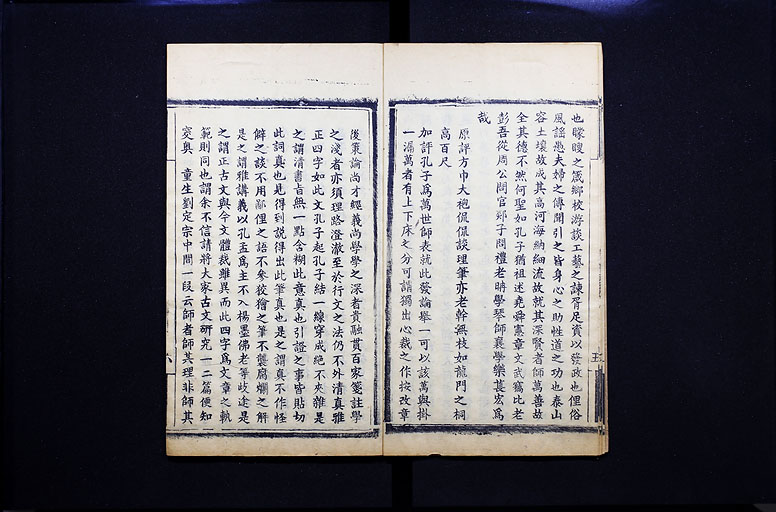 也矇瞍之箴鄉校游談工藝之諫胥足資以發政也俚俗
風謠愚夫婦之傳聞引之皆身心之助性道之功也泰山
容土壤故成其高河海納細流故就其深賢者師萬善故
全其德不然何聖如孔子猶祖述堯舜憲章文武竊比老
彭吾從周公問官郯子問禮老聃學琴師襄學樂萇宏爲
哉
原評方巾大袍侃侃談理筆亦老幹無枝如龍門之桐
高百尺
加評孔子爲萬世師表就此發論舉一可以該萬與掛
一漏萬者有上下床之分可謂獨出心裁之作按改章
後策論尚才經義尚學學之深者貴融貫百家箋註學
之淺者亦須理路澄澈至於行文之法仍不外清真雅
正四字如此文孔子起孔子結一線穿成絕不夾雜是
之謂清書旨無一點含糊此意真也引證之事皆貼切
此詞真也見得到說得出此筆真也是之謂真不作怪
僻之談不用鄙俚之語不參狡獪之筆不襲腐爛之解
是之謂雅講義以孔孟爲主不入楊墨佛老等歧途是
之謂正古文與今文體裁雖異而此四字爲文章之軌
範則同也謂余不信請將大家古文研究一二篇便知
突奥　童生劉定宗中間一段云師者師其理非師其
五